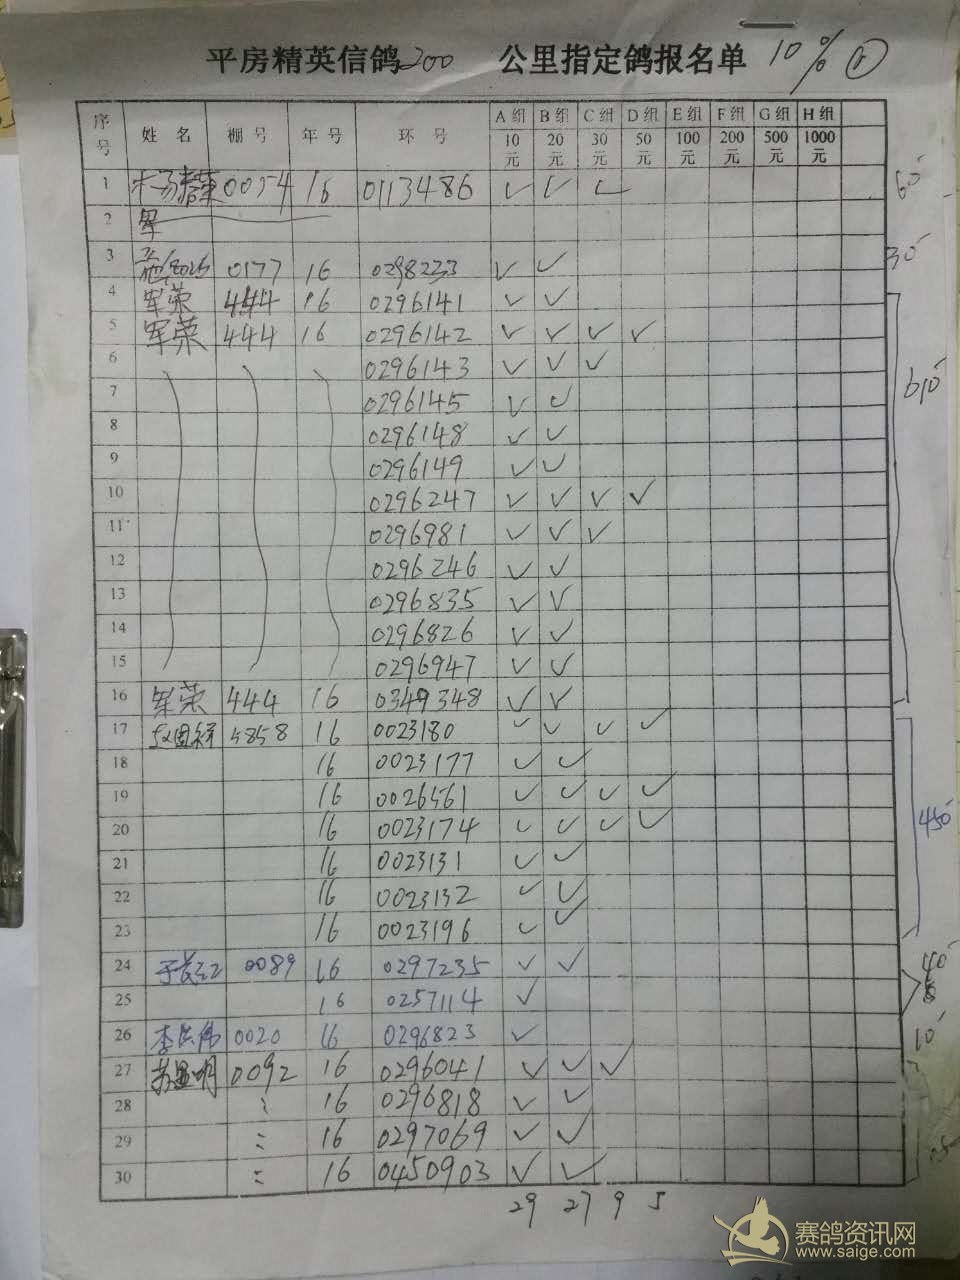 平房精英信鸽200 公里指定鸽报名单 10%
序号 姓名 棚号 年号 环号 A组 10元 B组 20元 C组 30元 D组 50元 E组 100元 F组 200元 G组 500元 H组 1000元
1 0054 16 0113486 ✓ ✓ ✓ 60
2
3 0177 16 0298233 ✓ ✓ 30
4 军荣 444 16 0296141 ✓ ✓
5 军荣 444 16 0296142 ✓ ✓ ✓ ✓
6 0296143 ✓ ✓ ✓
7 0296145 ✓ ✓ 610
8 0296148 ✓ ✓
9 0296149 ✓ ✓
10 0296247 ✓ ✓ ✓ ✓
11 0296981 ✓ ✓ ✓
12 0296246 ✓ ✓
13 0296835 ✓ ✓
14 0296826 ✓ ✓
15 0296947 ✓ ✓
16 军荣 444 16 0349348 ✓ ✓
17 5858 16 0023180 ✓ ✓ ✓ ✓
18 16 0023177 ✓ ✓
19 16 0026561 ✓ ✓ ✓ ✓
20 16 0023174 ✓ ✓ ✓ ✓ 450
21 16 0023131 ✓ ✓
22 16 0023132 ✓ ✓
23 16 0023196 ✓ ✓
24 0089 16 0297235 ✓ ✓ 40
25 16 0257114 ✓
26 0020 16 0296823 ✓ 10
27 0092 16 0296041 ✓ ✓ ✓
28 16 0296818 ✓ ✓
29 16 0297069 ✓ ✓
30 16 0450903 ✓ ✓
29 27 9 5
赛鸽资讯网
www.saige.com